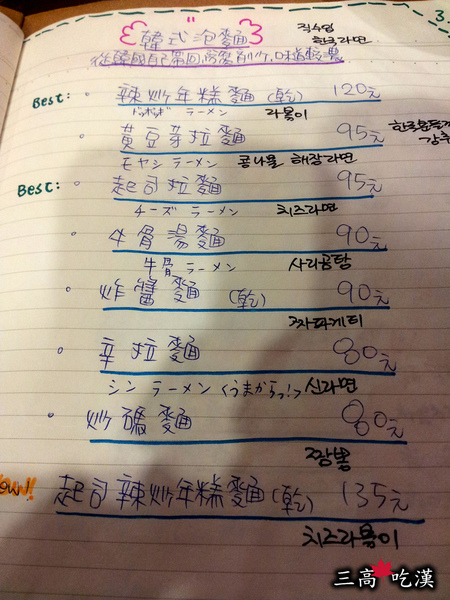 3
韓式泡麵
직수입
한국라면
從韓國自己帶回,需要煮,口味道較濃
Best: 辣炒年糕麵(乾) 120元
ラーメン 라볶이
黃豆芽拉麵 95元
モヤシ ラーメン 콩나물 해장라면
Best: 起司拉麵 95元
チーズ ラーメン 치즈라면
牛骨湯麵 90元
牛骨 ラーメン 사리곰탕
炸醬麵 (乾) 90元
짜파게티
辛拉麵 80元
シン ラーメン くうまからっ!> 신라면
炒碼麵 80元
짬뽕
起司辣炒年糕麵(乾) 135元
치즈라볶이
三高 吃漢